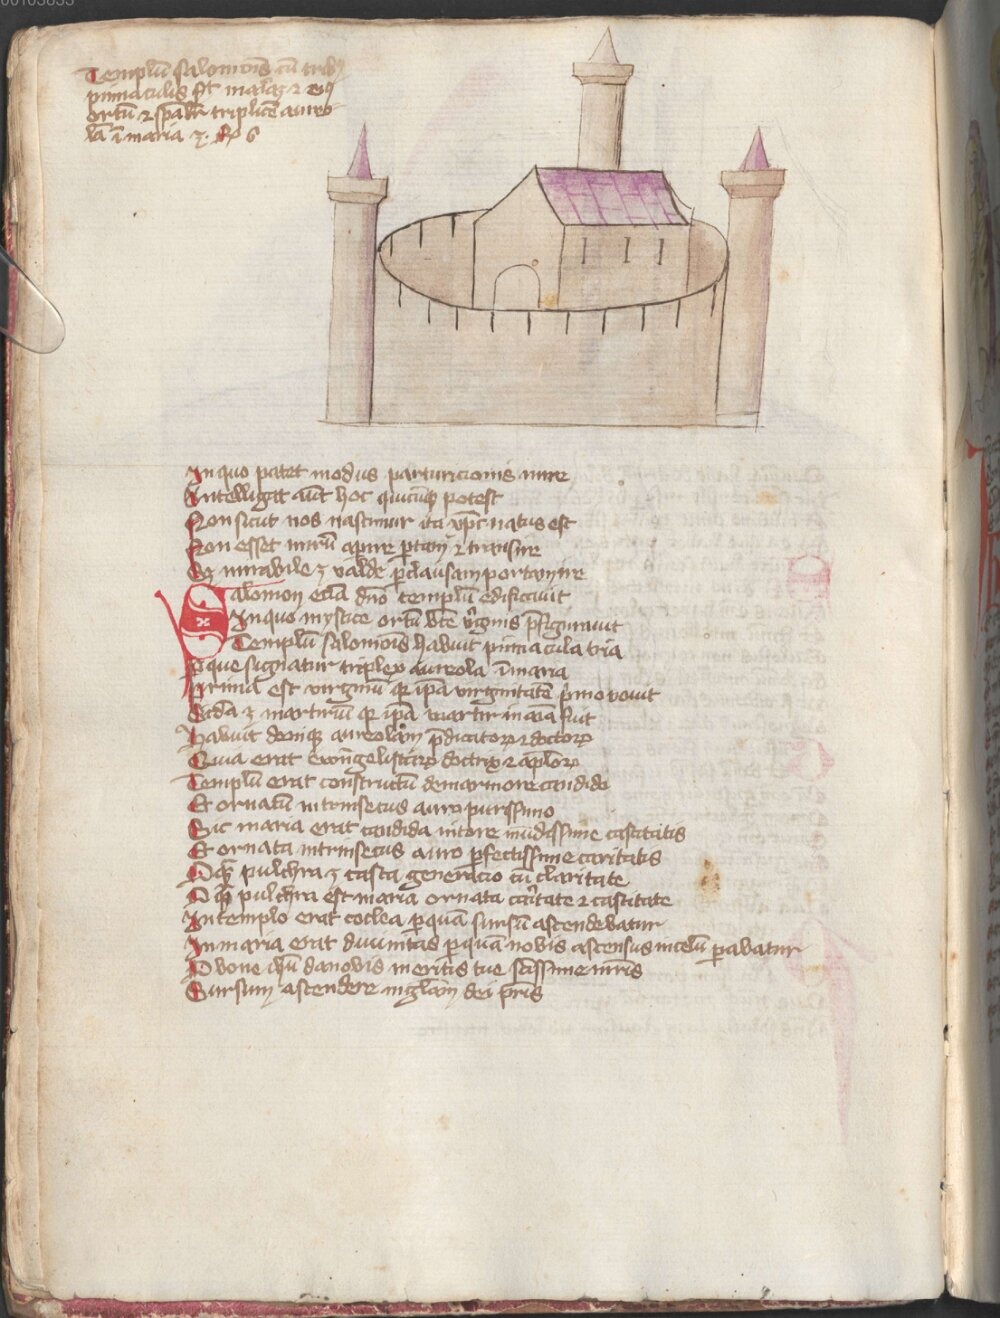 00103853
Templū salomōis cū trib9
pinnaculis
ortū ⁊ triplicē aureo-
lā ī maria 6
In quo patet modus parturicionis mire
Intelligat aūt hoc quicūq potest
Non sicut nos nascimur ita xp̄c natus est
Non esset mirū aꝑire portam ⁊ transire
Sꝫ mirabile ꝫ valde ꝑ clausam portam ire
Salomon eciā dn̄o templū edificauit
In quo mystice ortū bt̄e v̓ginis p̄figurauit
Templū salomōis habuit pinnacula tria
Per que signatur triplex aureola ī maria
Prima est virginū qr ip̄a virginitatē pͥmo vouit
Scd̄a ꝫ martirū qr ip̄a martir in aīa fuit
Habuit deniqꝫ aureolam p̄dicatoꝝ ⁊ doctoꝝ
Quia erat ewangelistaꝝ doctrix ⁊ apl̄oꝝ
Templū erat constructū de marmore candido
Et ornatū intrinsecus auro purissimo
Sic maria erat candida nitore mūdissime castitatis
Et ornata intrinsecus auro ꝑfectissime caritatis
O qͣ pulchra ꝫ casta generacio cū claritate
O qͣ pulchra est maria ornata caͥtate ⁊ castitate
In templo erat coclea ꝑ quā sursū ascendebatur
In maria erat diuinitas ꝑ quā nobis ascensus in celū ꝑabatur
O bone ih̄u da nobis meritis tue sc̄issime mr̄is
Sursum ascendere in gl̄iam dei pr̄is